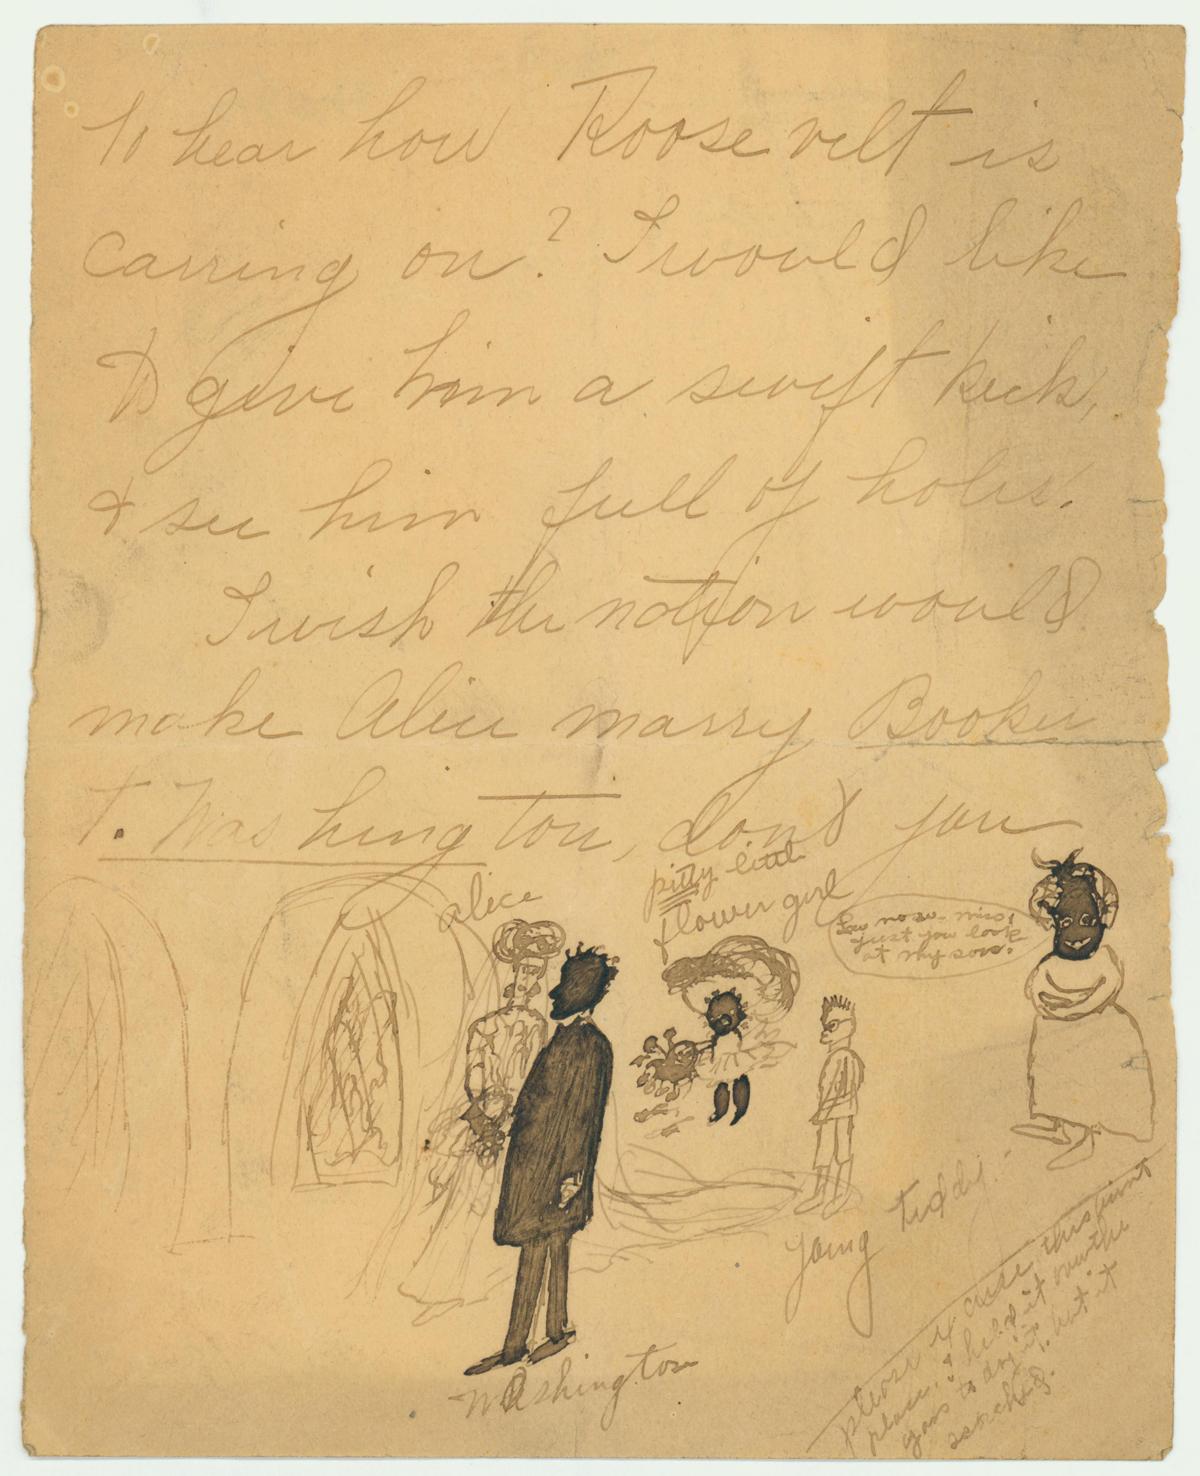 To hear how Roosevelt is
carring on? I would like
to give him a swift kick,
& see him full of holes.
I wish the nation would
make Alice marry Booker
T. Washington, dont you
alice
pitty little
flower girl
Law now- miss,
just you look
at my son.
young teddy-
Washington
please excuse this burnt
place, I held it over the
gas to dry it, but it
scorched.